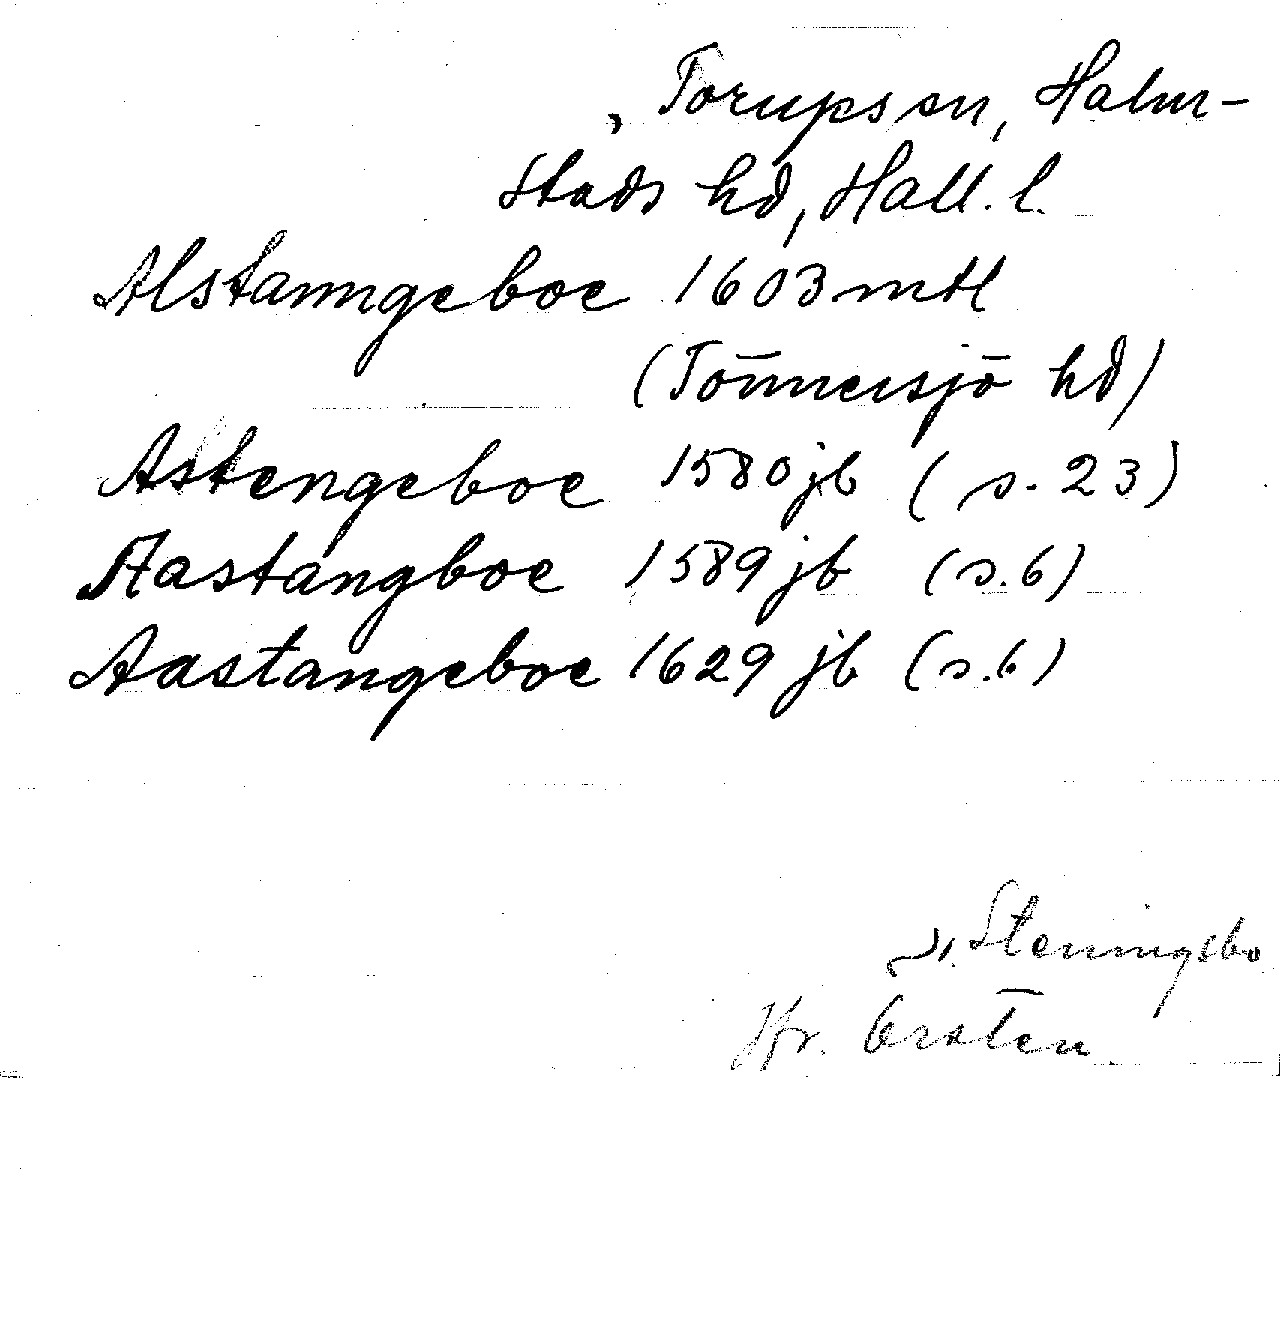 , Torups sn, Halm-
stads hd, Hall. l.
Alstanngeboe 1603 mtl
(Tönnersjö hd)
Astengeboe 1580 jb (s. 23)
Aastangboe 1589 jb (s. 6)
Aastangeboe 1629 jb (s. 6)
Steningsbo
Jfr.